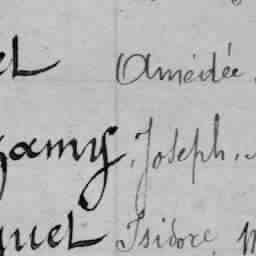 el Amédée,
gamy, Joseph,
quel Isidore,